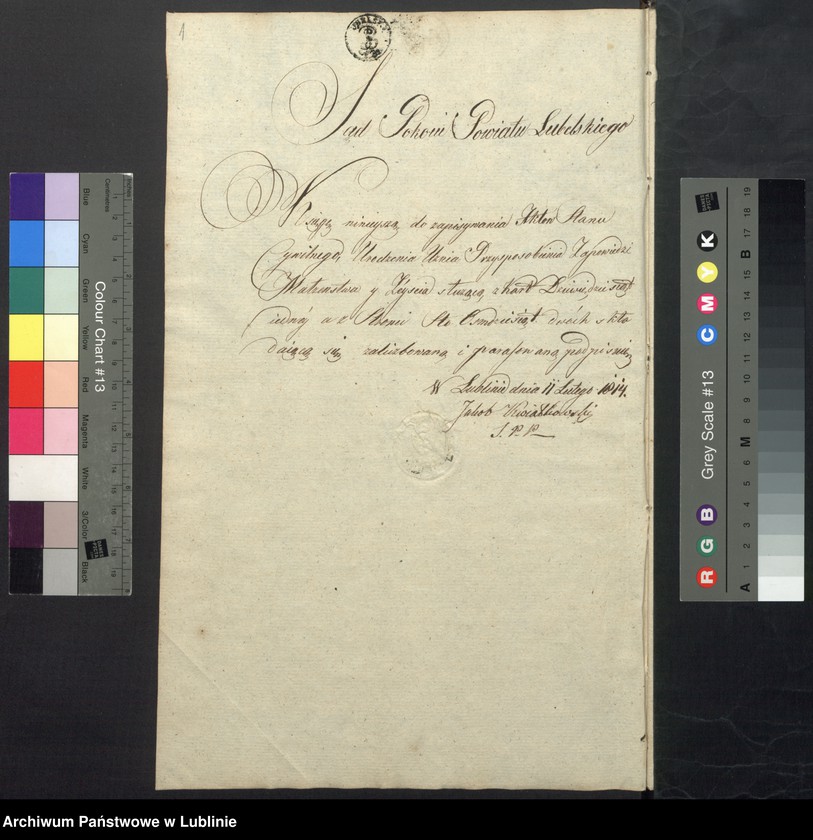 1
Sąd Pokoiu Powiatu Lubelskiego
Xsięgę ninieyszą do zapisywania Aktów Stanu
Cywilnego, Urodzenia Uznia Przysposobienia Zapowiedzi
Małżeństwa y Zeyścia służącą, z kart Dziewiędziesiąt
iednéj a z Stronic Sto Ośmdziesiąt dwóch skła
daiącą się zaliczbowaną i parafowaną podpisuię
W Lublinie dnia 11 Lutego 1814.
Jakób Kwiatkowski
S. P. P.
Blue
Cyan
Green
Yellow
Red
Magenta
White
3/Color
Black
Colour Chart #13
Centimetres
Inches
DANES
PICTA
Grey Scale #13
R G B C M Y K
A 1 2 3 4 5 6 M 8 9 10 11 12 13 14 15 B 17 18 19
Archiwum Państwowe w Lublinie